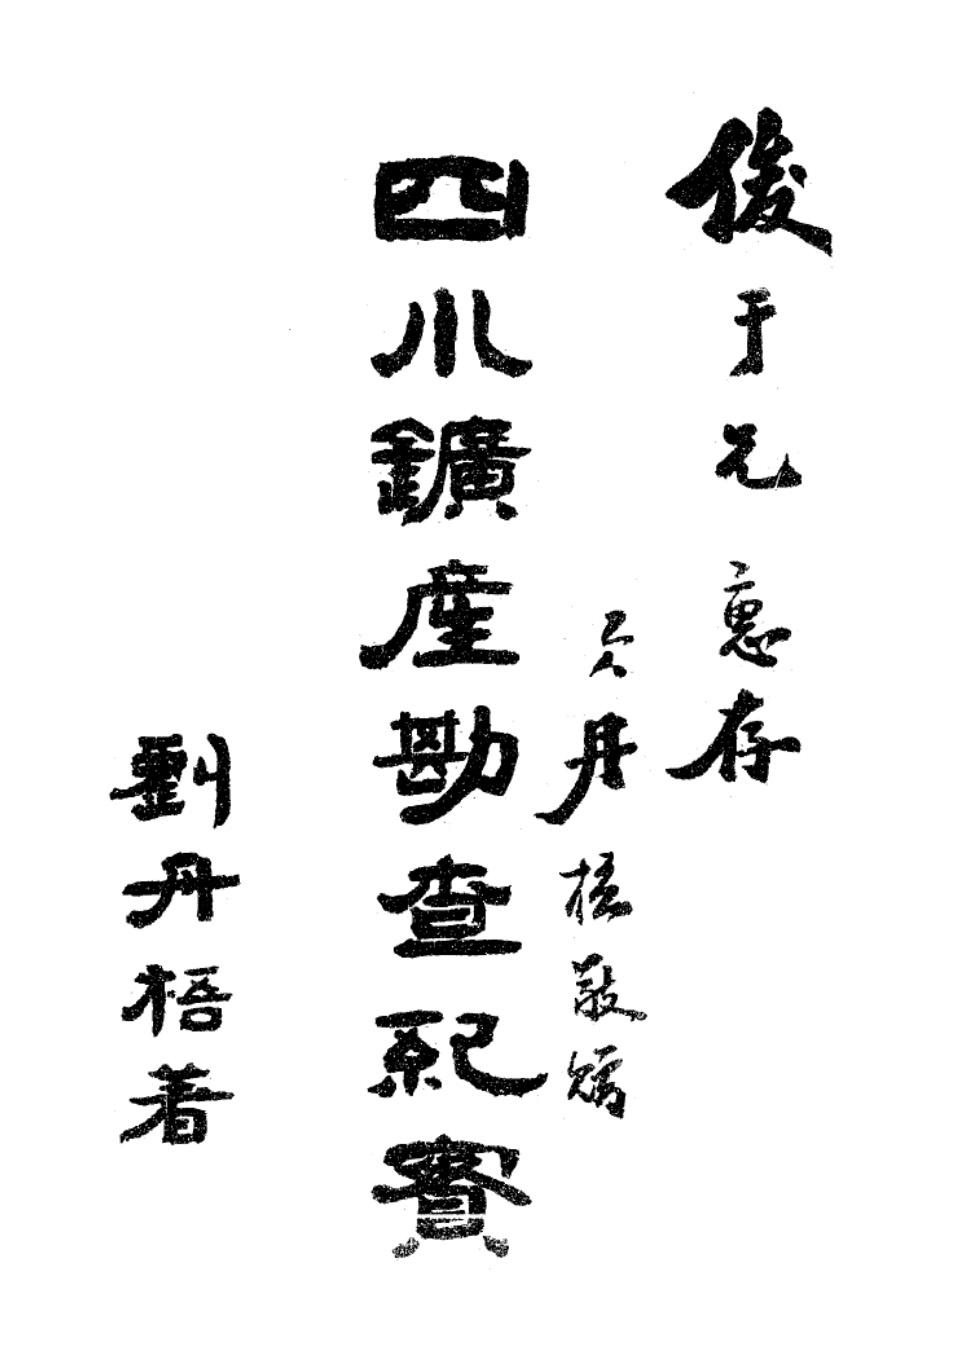 俊于兄惠存
丹梧敬贈
四川鑛産勘查紀實
劉丹梧著